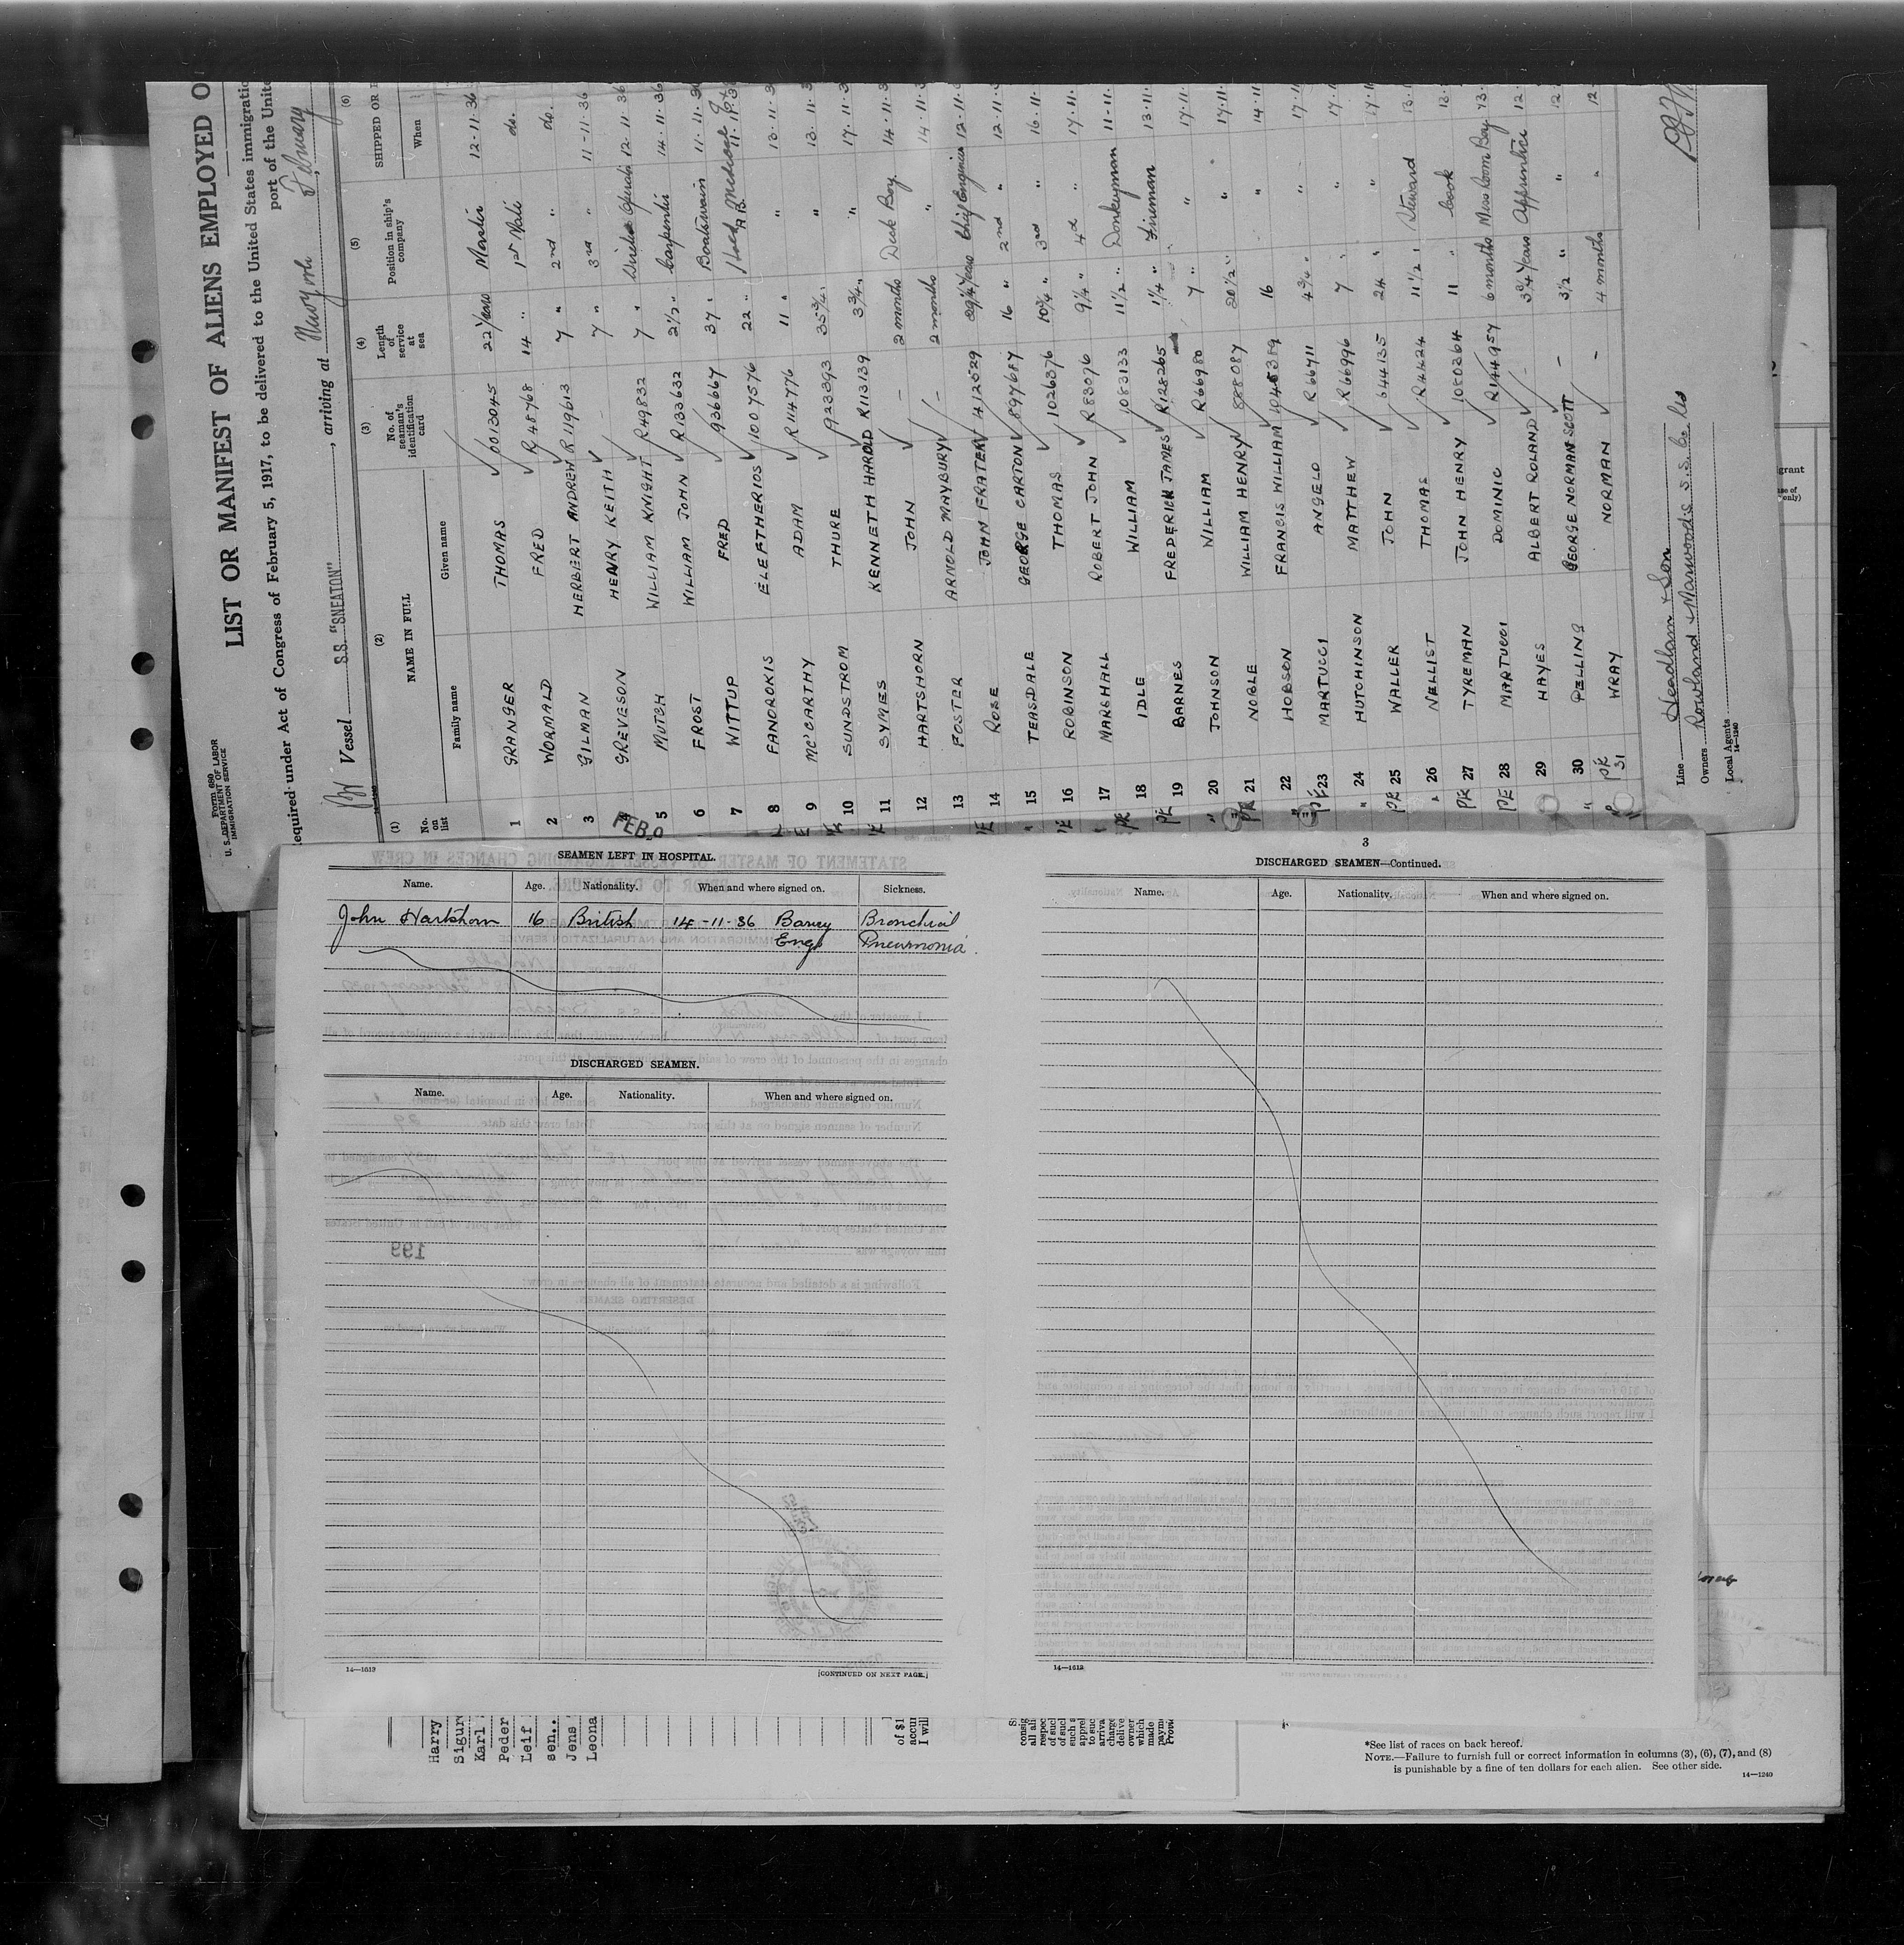 Form 680
U. S. DEPARTMENT OF LABOR
IMMIGRATION SERVICE
LIST OR MANIFEST OF ALIENS EMPLOYED O
equired under Act of Congress of February 5, 1917, to be delivered to the United States immigratio
port of the Unite
Vessel S.S. "SNEATON", arriving at Newyork February
(1) (2) (3) (4) (5) (6)
No. on list
NAME IN FULL
Family name Given name
No. of seaman's identification card
Length of service at sea
Position in ship's company
SHIPPED OR
When
1 GRANGER THOMAS 0013045 22 Years Master 12-11-36
2 WORMALD FRED R 48768 14 " 1st Mate do.
3 GILMAN HERBERT ANDREW R 119613 7 " 2nd " do.
4 GREVESON HENRY KEITH - 7 " 3rd " 11-11-36
5 MUTCH WILLIAM KNIGHT R49832 7 " Wireless Operator 12-11-36
6 FROST WILLIAM JOHN R 133632 2½ " Carpenter 14-11-36
7 WITTUP FRED 936667 37 " Boatswain 11-11-36
8 FANDROKIS ELEFTHERIOS 1007576 22 " A.B. 11-11-3
9 MC'CARTHY ADAM R 114776 11 " " 13-11-3
10 SUNDSTROM THURE 923393 35¾ " " 13-11-3
11 SYMES KENNETH HAROLD R113139 3¾ " " 17-11-3
12 HARTSHORN JOHN - 2 months Deck Boy 14-11-3
13 FOSTER ARNOLD MAYBURY - 2 months " 14-11-
14 ROSE JOHN FRATER 412529 29¼ Years Chief Engineer 12-11-
15 TEASDALE GEORGE CARTON 897687 16 " 2nd " 12-11-
16 ROBINSON THOMAS 1026376 10¾ " 3rd " 16-11-
17 MARSHALL ROBERT JOHN R 83076 9¼ " 4th " 17-11-
18 IDLE WILLIAM 1083133 11½ " Donkeyman 11-11-
19 BARNES FREDERICK JAMES R128265 1¼ " Fireman 13-11-
20 JOHNSON WILLIAM R66980 7 " " 17-11
21 NOBLE WILLIAM HENRY 888087 20½ " " 17-11
22 HOBSON FRANCIS WILLIAM 1045389 16 " 14-11
23 MARTUCCI ANGELO R 66711 4¾ " " 17-1
24 HUTCHINSON MATTHEW R66996 7 " " 17-1
25 WALLER JOHN 644135 24 " " 17-1
26 NELLIST THOMAS R4424 11½ " Steward 13-1
27 TYREMAN JOHN HENRY 1080364 11 " Cook 13-
28 MARTUCCI DOMINIC R144957 6 months Mess Room Boy 13-
29 HAYES ALBERT ROLAND - 3¾ Years Apprentice 12-
30 PELLING GEORGE NORMAN SCOTT - 3½ " " 12
31 WRAY NORMAN - 4 months " 12
Line Headlam & Son
Owners Rowland & Marwoods S.S. Co. Ltd
Local Agents
14—1240
FEB 9
SEAMEN LEFT IN HOSPITAL.
Name. Age. Nationality. When and where signed on. Sickness.
John Hartshorn 16 British 14-11-36 Barry Bronchial
Eng. Pneumonia
DISCHARGED SEAMEN.
Name. Age. Nationality. When and where signed on.
14—1613
[CONTINUED ON NEXT PAGE.]
3
DISCHARGED SEAMEN—Continued.
Name. Age. Nationality. When and where signed on.
14—1613
Harry
Sigur
Karl
Peder
Leif
sen..
Jens
Leona
of $1
accur
I will
consig
all ali
respec
of suc
of suc
such s
appre
to suc
arriva
charge
delive
owner
which
made
paym
Provi
*See list of races on back hereof.
NOTE.—Failure to furnish full or correct information in columns (3), (6), (7), and (8)
is punishable by a fine of ten dollars for each alien. See other side.
14—1240